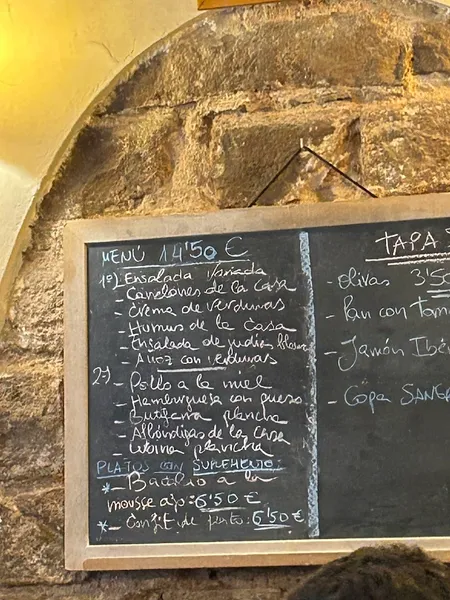 MENÚ 14'50 €
1º) Ensalada variada
- Canelones de la casa
- Crema de verduras
- Humus de la casa
- Ensalada de judía blanca
- Arroz con verduras
2º) - Pollo a la miel
- Hamburguesa con queso
- Butifarra plancha
- Albóndigas de la casa
- Lubina plancha
PLATOS CON SUPLEMENTO:
*- Bacalao a la
mousse ajo: 6'50 €
*- Confit de pato: 6'50 €
TAPA
- Olivas 3'50
- Pan con tom
- Jamón Ibér
- Copa SANG